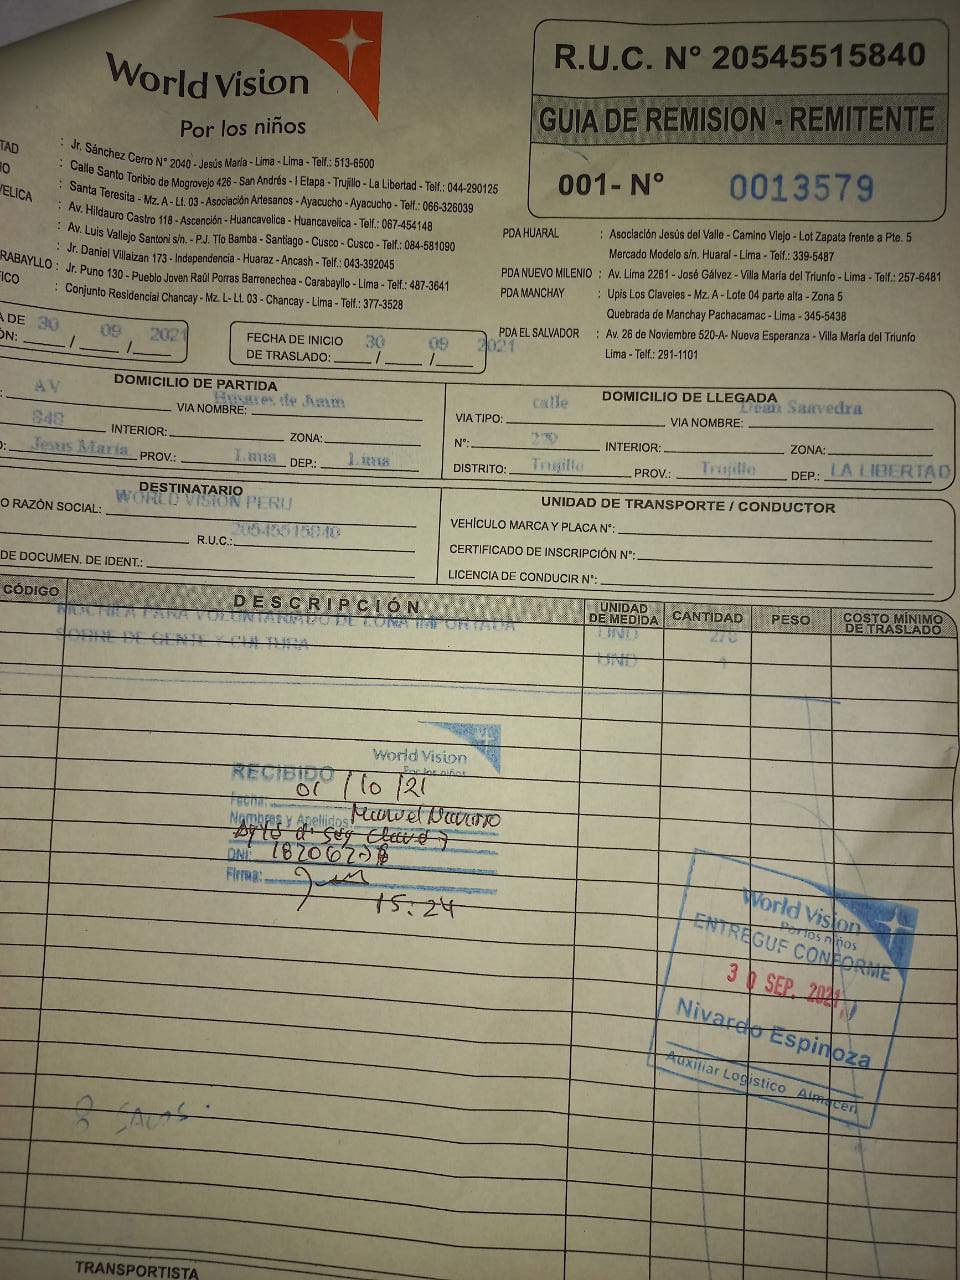 World Vision
Por los niños
R.U.C. N° 20545515840
GUIA DE REMISION - REMITENTE
001- N° 0013579
TAD : Jr. Sánchez Cerro N° 2040 - Jesús María - Lima - Lima - Telf.: 513-6500
IO : Calle Santo Toribio de Mogrovejo 426 - San Andrés - I Etapa - Trujillo - La Libertad - Telf.: 044-290125
VELICA : Santa Teresita - Mz. A - Lt. 03 - Asociación Artesanos - Ayacucho - Ayacucho - Telf.: 066-326039
: Av. Hildauro Castro 118 - Ascención - Huancavelica - Huancavelica - Telf.: 067-454148
: Av. Luis Vallejo Santoni s/n. - P.J. Tío Bamba - Santiago - Cusco - Cusco - Telf.: 084-581090
: Jr. Daniel Villaizan 173 - Independencia - Huaraz - Ancash - Telf.: 043-392045
RABAYLLO : Jr. Puno 130 - Pueblo Joven Raúl Porras Barrenechea - Carabayllo - Lima - Telf.: 487-3641
ICO : Conjunto Residencial Chancay - Mz. L- Lt. 03 - Chancay - Lima - Telf.: 377-3528
PDA HUARAL : Asociación Jesús del Valle - Camino Viejo - Lot Zapata frente a Pte. 5
Mercado Modelo s/n. Huaral - Lima - Telf.: 339-5487
PDA NUEVO MILENIO : Av. Lima 2261 - José Gálvez - Villa María del Triunfo - Lima - Telf.: 257-6481
PDA MANCHAY : Upis Los Claveles - Mz. A - Lote 04 parte alta - Zona 5
Quebrada de Manchay Pachacamac - Lima - 345-5438
PDA EL SALVADOR : Av. 26 de Noviembre 520-A- Nueva Esperanza - Villa María del Triunfo
Lima - Telf.: 291-1101
A DE
ÓN: 30 / 09 / 2021
FECHA DE INICIO
DE TRASLADO: 30 / 09 / 2021
DOMICILIO DE PARTIDA
AV VIA NOMBRE: Husares de Junin
848 INTERIOR: ZONA:
Jesus Maria PROV.: Lima DEP.: Lima
DOMICILIO DE LLEGADA
VIA TIPO: calle VIA NOMBRE: Dean Saavedra
N°: INTERIOR: ZONA:
DISTRITO: Trujillo PROV.: Trujillo DEP.: LA LIBERTAD
DESTINATARIO
O RAZÓN SOCIAL: WORLD VISION PERU
R.U.C.: 20545515840
DE DOCUMEN. DE IDENT.:
UNIDAD DE TRANSPORTE / CONDUCTOR
VEHÍCULO MARCA Y PLACA N°:
CERTIFICADO DE INSCRIPCIÓN N°:
LICENCIA DE CONDUCIR N°:
CÓDIGO DESCRIPCIÓN UNIDAD DE MEDIDA CANTIDAD PESO COSTO MÍNIMO DE TRASLADO
MOCHILA PARA VOLUNTARIADO DE LONA IMPORTADA UND
SOBRE DE GENTE Y CULTURA UND 1
World Vision
Por los niños
RECIBIDO
Fecha: 01/10/21
Nombres y Apellidos: Manuel Navarro
DNI:
Firma:
15:24
World Vision
Por los niños
ENTREGUE CONFORME
30 SEP. 2021
Nivardo Espinoza
Auxiliar Logístico Almacen
8 SACOS.
TRANSPORTISTA